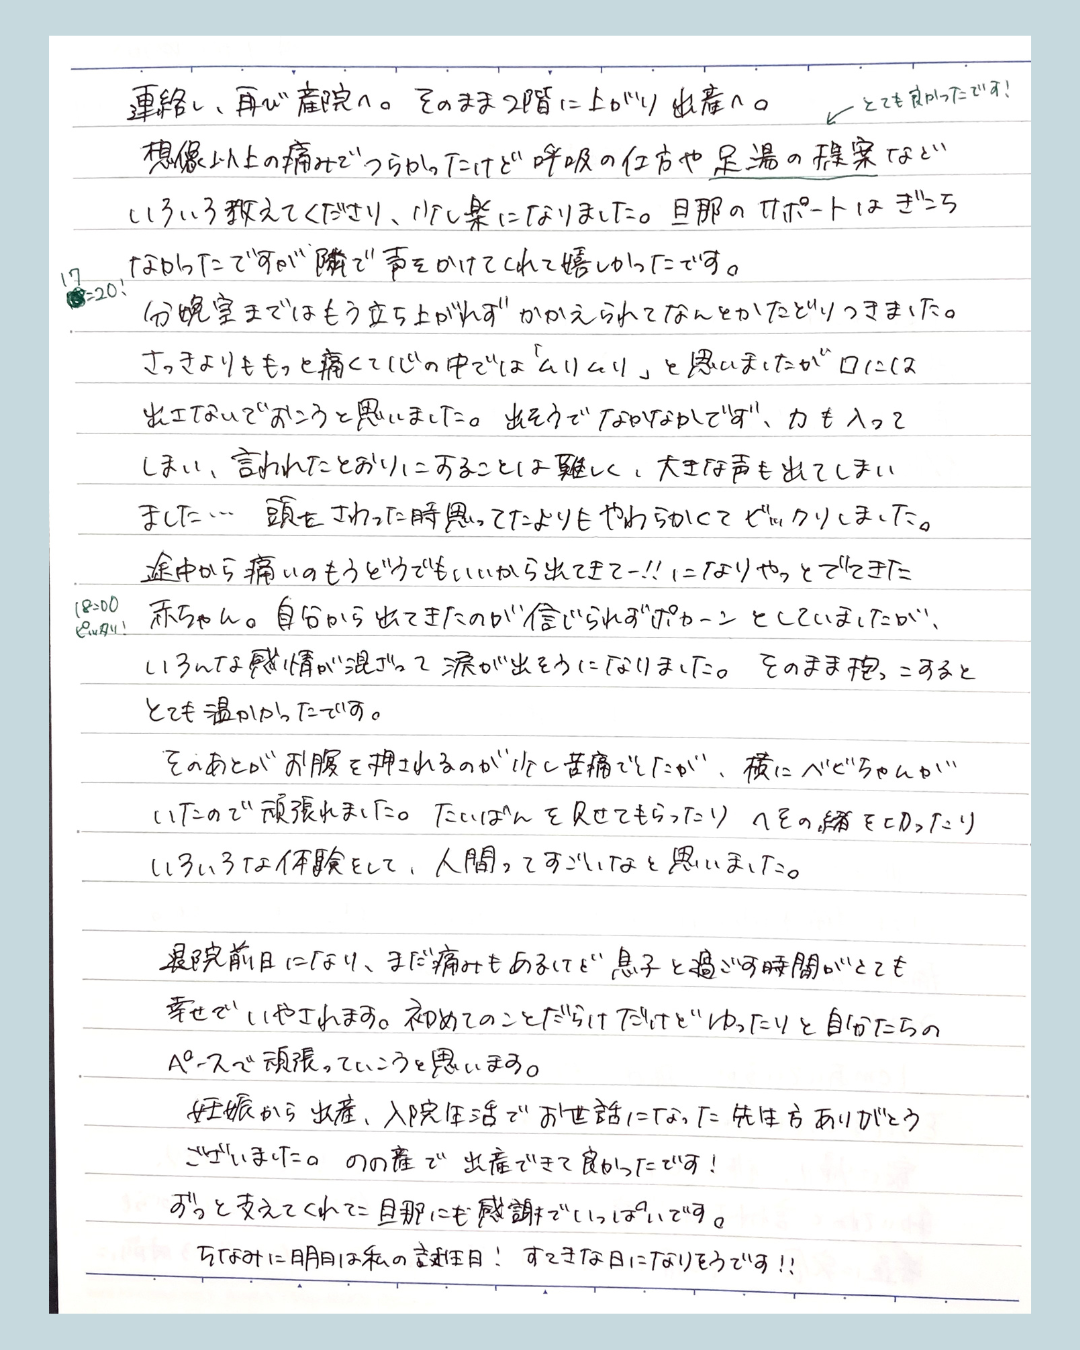 連絡し、再び産院へ。そのまま2階に上がり出産へ。
とても良かったです!
想像以上の痛みでつらかったけど呼吸の仕方や足湯の提案など
いろいろ教えてくださり、少し楽になりました。旦那のサポートはぎこち
なかったですが隣で声をかけてくれて嬉しかったです。
17
=20!
分娩室まではもう立ち上がれずかかえられてなんとかたどりつきました。
さっきよりももっと痛くて心の中では「ムリムリ」と思いましたが口には
出さないでおこうと思いました。出そうでなかなかでず、力も入って
しまい、言われたとおりにすることは難しく、大きな声も出てしまい
ました… 頭をさわった時思ってたよりもやわらかくてビックリしました。
途中から痛いのもうどうでもいいから出てきてー!!になりやっとでてきた
18=00
ピッタリ!
赤ちゃん。自分から出てきたのが信じられずポカーンとしていましたが、
いろんな感情が混ざって涙が出そうになりました。そのまま抱っこすると
とても温かかったです。
そのあとがお腹を押されるのが少し苦痛でしたが、横にベビちゃんが
いたので頑張れました。たいばんを見せてもらったりへその緒を切ったり
いろいろな体験をして、人間ってすごいなと思いました。
退院前日になり、まだ痛みもあるけど息子と過ごす時間がとても
幸せでいやされます。初めてのことだらけだけどゆったりと自分たちの
ペースで頑張っていこうと思います。
妊娠から出産、入院生活でお世話になった先生方ありがとう
ございました。のの産で出産できて良かったです!
ずっと支えてくれた旦那にも感謝でいっぱいです。
ちなみに明日は私の誕生日! すてきな日になりそうです!!